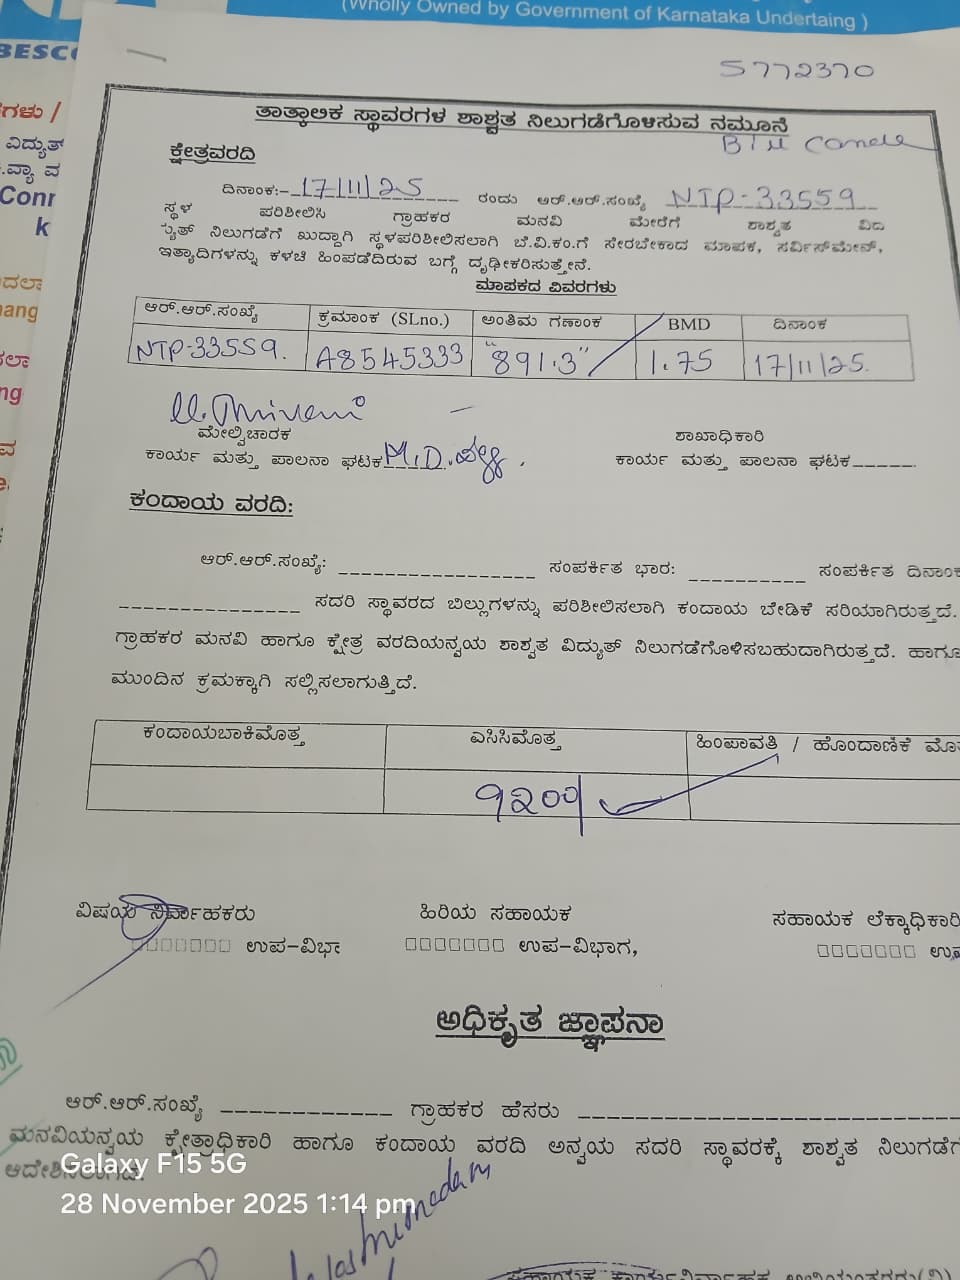 (Wholly Owned by Government of Karnataka Undertaing )
BESCO
ಗಳು /
ವಿದ್ಯುತ್
Conn
k
5772370
ತಾತ್ಕಾಲಿಕ ಸ್ಥಾವರಗಳ ಶಾಶ್ವತ ನಿಲುಗಡೆಗೊಳಿಸುವ ನಮೂನೆ
ಕ್ಷೇತ್ರವರದಿ
ದಿನಾಂಕ:- 17/11/25 ರಂದು ಆರ್.ಆರ್.ಸಂಖ್ಯೆ NTP-33559
ಸ್ಥಳ ಪರಿಶೀಲಿಸಿ ಗ್ರಾಹಕರ ಮನವಿ ಮೇರೆಗೆ ಶಾಶ್ವತ ವಿದ
್ಯುತ್ ನಿಲುಗಡೆಗೆ ಖುದ್ದಾಗಿ ಸ್ಥಳಪರಿಶೀಲಿಸಲಾಗಿ ಬೆ.ವಿ.ಕಂ.ಗೆ ಸೇರಬೇಕಾದ ಮಾಪಕ, ಸರ್ವಿಸ್‌ಮೇನ್,
ಇತ್ಯಾದಿಗಳನ್ನು ಕಳಚಿ ಹಿಂಪಡೆದಿರುವ ಬಗ್ಗೆ ದೃಢೀಕರಿಸುತ್ತೇನೆ.
ಮಾಪಕದ ವಿವರಗಳು
ಆರ್.ಆರ್.ಸಂಖ್ಯೆ ಕ್ರಮಾಂಕ (SLno.) ಅಂತಿಮ ಗಣಾಂಕ BMD ದಿನಾಂಕ
NTP-33559. A8545333 "891.3" 1.75 17/11/25.
ಮೇಲ್ವಿಚಾರಕ ಶಾಖಾಧಿಕಾರಿ
ಕಾರ್ಯ ಮತ್ತು ಪಾಲನಾ ಘಟಕ M.D. ಕಾರ್ಯ ಮತ್ತು ಪಾಲನಾ ಘಟಕ______.
ಕಂದಾಯ ವರದಿ:
ಆರ್.ಆರ್.ಸಂಖ್ಯೆ: ________________ ಸಂಪರ್ಕಿತ ಭಾರ: __________ ಸಂಪರ್ಕಿತ ದಿನಾಂಕ
_______________ ಸದರಿ ಸ್ಥಾವರದ ಬಿಲ್ಲುಗಳನ್ನು ಪರಿಶೀಲಿಸಲಾಗಿ ಕಂದಾಯ ಬೇಡಿಕೆ ಸರಿಯಾಗಿರುತ್ತದೆ.
ಗ್ರಾಹಕರ ಮನವಿ ಹಾಗೂ ಕ್ಷೇತ್ರ ವರದಿಯನ್ವಯ ಶಾಶ್ವತ ವಿದ್ಯುತ್ ನಿಲುಗಡೆಗೊಳಿಸಬಹುದಾಗಿರುತ್ತದೆ. ಹಾಗೂ
ಮುಂದಿನ ಕ್ರಮಕ್ಕಾಗಿ ಸಲ್ಲಿಸಲಾಗುತ್ತಿದೆ.
ಕಂದಾಯಬಾಕಿಮೊತ್ತ ಎಸಿಸಿಮೊತ್ತ ಹಿಂಪಾವತಿ / ಹೊಂದಾಣಿಕೆ ಮೊತ
9200/
ವಿಷಯ ನಿರ್ವಾಹಕರು ಹಿರಿಯ ಸಹಾಯಕ ಸಹಾಯಕ ಲೆಕ್ಕಾಧಿಕಾರಿ
□□□□□□□ ಉಪ-ವಿಭಾ □□□□□□□ ಉಪ-ವಿಭಾಗ, □□□□□□□ ಉಪ
ಅಧಿಕೃತ ಜ್ಞಾಪನಾ
ಆರ್.ಆರ್.ಸಂಖ್ಯೆ ______________ ಗ್ರಾಹಕರ ಹೆಸರು ______________________________
ಮನವಿಯನ್ವಯ ಕ್ಷೇತ್ರಾಧಿಕಾರಿ ಹಾಗೂ ಕಂದಾಯ ವರದಿ ಅನ್ವಯ ಸದರಿ ಸ್ಥಾವರಕ್ಕೆ ಶಾಶ್ವತ ನಿಲುಗಡೆಗ
Galaxy F15 5G
28 November 2025 1:14 pm